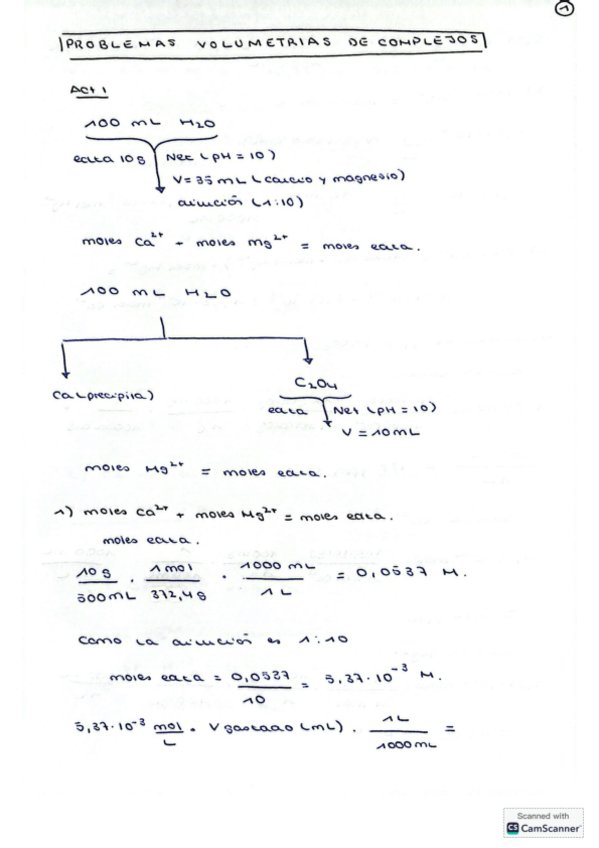 1
PROBLEMAS VOLUMETRIAS DE COMPLEJOS
ACT 1
100 mL H2O
edta 10g Net (pH = 10)
V = 35 mL (calcio y magnesio)
dilución (1:10)
moles Ca2+ + moles Mg2+ = moles edta.
100 mL H2O
Ca (precipita) C2O4
edta Net (pH = 10)
V = 10 mL
moles Mg2+ = moles edta.
1) moles Ca2+ + moles Mg2+ = moles edta.
moles edta.
10 g / 500 mL · 1 mol / 372,4 g · 1000 mL / 1 L = 0,0537 M.
Como la dilución es 1:10
moles edta = 0,0537 / 10 = 5,37·10-3 M.
5,37·10-3 mol / L · V gastado (mL) · 1L / 1000 mL =
Scanned with
CS CamScanner